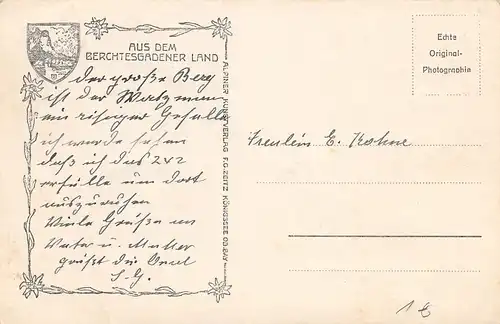 AUS DEM
BERCHTESGADENER LAND
der große Berg
ist der Watzmann
ein risiger Geselle
ich werde sehen
daß ich das
erfülle um dort
auszuruhen
Viele Grüße an
Vater u. Mutter
grüßt die
S. G.
ALPINER KUNSTVERLAG F.G. ZEITZ KÖNIGSSEE OB.BAY
Echte
Original-
Photographie
Freulein E. Kohne
1 €